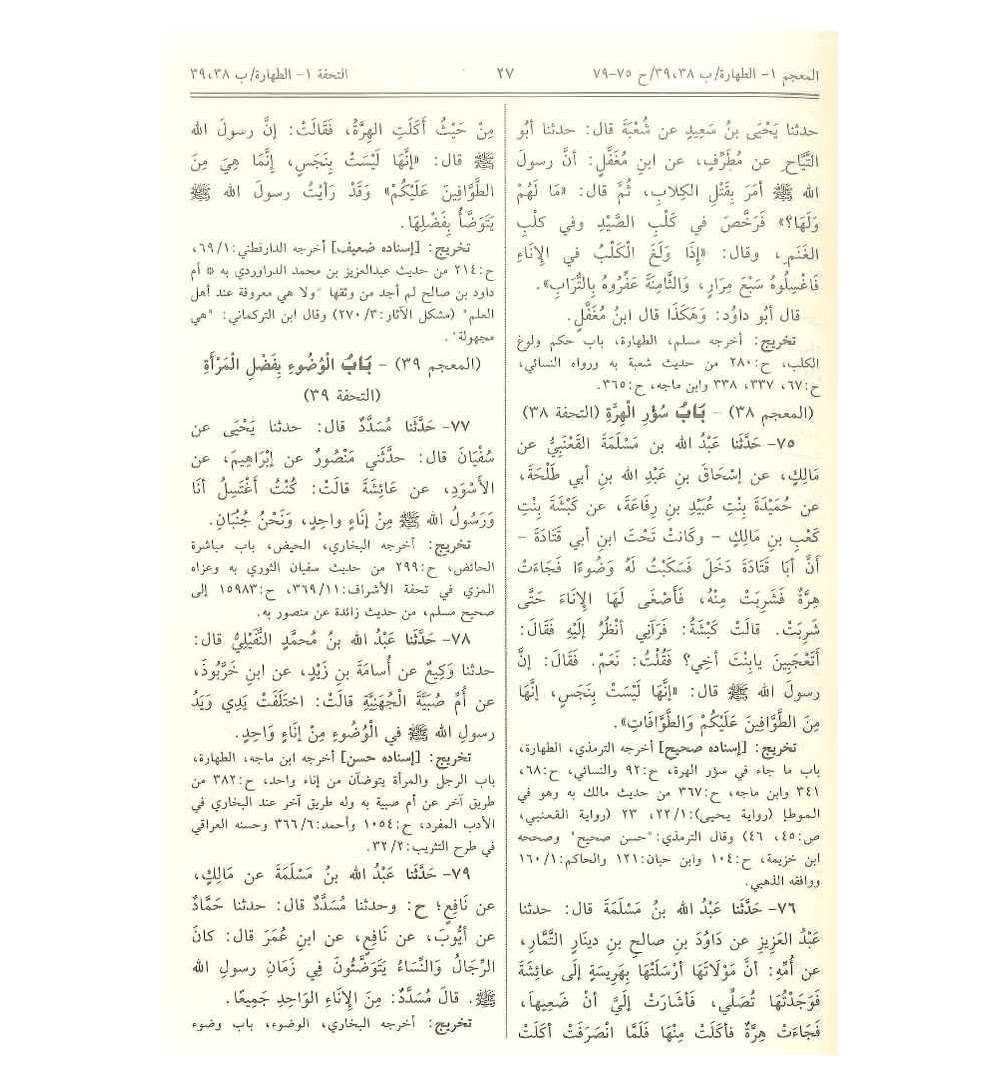 المعجم ١- الطهارة/ ب ٣٨، ٣٩/ ح ٧٥-٧٩
٢٧
التحفة ١- الطهارة/ ب ٣٨، ٣٩
حدثنا يَحْيَى بنُ سَعِيدٍ عن شُعْبَةَ قال: حدثنا أبُو
التَّيَّاحِ عن مُطَرِّفٍ، عن ابنِ مُغَفَّلٍ: أنَّ رسولَ
الله ﷺ أمَرَ بِقَتْلِ الكِلَابِ، ثُمَّ قال: «مَا لَهُمْ
وَلَهَا؟» فَرَخَّصَ في كَلْبِ الصَّيْدِ وفي كلْبِ
الغَنَمِ، وقال: «إِذَا وَلَغَ الْكَلْبُ في الإِنَاءِ
فَاغْسِلُوهُ سَبْعَ مِرَارٍ، وَالثَّامِنَةَ عَفِّرُوهُ بِالتُّرَابِ».
قال أبُو داوُد: وَهَكَذَا قال ابنُ مُغَفَّلٍ.
تخريج: أخرجه مسلم، الطهارة، باب حكم ولوغ
الكلب، ح: ٢٨٠ من حديث شعبة به ورواه النسائي،
ح: ٦٧، ٣٣٧، ٣٣٨ وابن ماجه، ح: ٣٦٥.
(المعجم ٣٨) - بَابُ سُؤْرِ الْهِرَّةِ (التحفة ٣٨)
٧٥- حَدَّثَنا عَبْدُ الله بن مَسْلَمَةَ القَعْنَبِيُّ عن
مَالِكٍ، عن إسْحَاقَ بنِ عَبْدِ الله بنِ أبي طَلْحَةَ،
عن حُمَيْدَةَ بِنْتِ عُبَيْدِ بنِ رِفَاعَةَ، عن كَبْشَةَ بِنْتِ
كَعْبِ بنِ مَالِكٍ - وكَانَتْ تَحْتَ ابنِ أبي قَتَادَةَ -
أنَّ أبَا قَتَادَةَ دَخَلَ فَسَكَبْتُ لَهُ وَضُوءًا فَجَاءَتْ
هِرَّةٌ فَشَرِبَتْ مِنْهُ، فَأَصْغَى لَهَا الإِنَاءَ حَتَّى
شَرِبَتْ. قالَتْ كَبْشَةُ: فَرَآنِي أنْظُرُ إلَيْهِ فَقَالَ:
أَتَعْجَبِينَ يابِنْتَ أخِي؟ فَقُلْتُ: نَعَمْ. فَقَالَ: إنَّ
رسولَ الله ﷺ قال: «إنَّهَا لَيْسَتْ بِنَجَسٍ، إنَّهَا
مِنَ الطَّوَّافِينَ عَلَيْكُمْ وَالطَّوَّافَاتِ».
تخريج: [إسناده صحيح] أخرجه الترمذي، الطهارة،
باب ما جاء في سؤر الهرة، ح: ٩٢ والنسائي، ح: ٦٨،
٣٤١ وابن ماجه، ح: ٣٦٧ من حديث مالك به وهو في
الموطإ (رواية يحيى): ١/ ٢٢، ٢٣ (رواية القعنبي،
ص: ٤٥، ٤٦) وقال الترمذي: "حسن صحيح" وصححه
ابن خزيمة، ح: ١٠٤ وابن حبان: ١٢١ والحاكم: ١/ ١٦٠
ووافقه الذهبي.
٧٦- حَدَّثَنا عَبْدُ الله بنُ مَسْلَمَةَ قال: حدثنا
عَبْدُ العَزِيزِ عن دَاوُدَ بنِ صالحِ بنِ دينَارٍ التَّمَّارِ،
عن أُمِّهِ: أنَّ مَوْلَاتَهَا أرْسَلَتْهَا بِهَرِيسَةٍ إلَى عائِشَةَ
فَوَجَدْتُهَا تُصَلِّي، فَأشَارَتْ إلَيَّ أنْ ضَعِيهَا،
فَجَاءَتْ هِرَّةٌ فأكَلَتْ مِنْهَا فَلَمَّا انْصَرَفَتْ أكَلَتْ
مِنْ حَيْثُ أَكَلَتِ الهِرَّةُ، فَقَالَتْ: إنَّ رسولَ الله
ﷺ قال: «إنَّهَا لَيْسَتْ بِنَجَسٍ، إنَّمَا هِيَ مِنَ
الطَّوَّافِينَ عَلَيْكُمْ» وَقَدْ رَأيْتُ رسولَ الله ﷺ
يَتَوَضَّأُ بِفَضْلِهَا.
تخريج: [إسناده ضعيف] أخرجه الدارقطني: ١/ ٦٩،
ح: ٢١٤ من حديث عبدالعزيز بن محمد الدراوردي به * أم
داود بن صالح لم أجد من وثقها "ولا هي معروفة عند أهل
العلم" (مشكل الآثار: ٣/ ٢٧٠) وقال ابن التركماني: "هي
مجهولة".
(المعجم ٣٩) - بَابُ الْوُضُوءِ بِفَضْلِ الْمَرْأَةِ
(التحفة ٣٩)
٧٧- حَدَّثَنا مُسَدَّدٌ قال: حدثنا يَحْيَى عن
سُفْيَانَ قال: حدَّثَني مَنْصُورٌ عن إبْرَاهِيمَ، عن
الأَسْوَدِ، عن عَائِشَةَ قالَتْ: كُنْتُ أغْتَسِلُ أنَا
وَرَسُولُ الله ﷺ مِنْ إنَاءٍ واحِدٍ، وَنَحْنُ جُنُبَانِ.
تخريج: أخرجه البخاري، الحيض، باب مباشرة
الحائض، ح: ٢٩٩ من حديث سفيان الثوري به وعزاه
المزي في تحفة الأشراف: ١١/ ٣٦٩، ح: ١٥٩٨٣ إلى
صحيح مسلم، من حديث زائدة عن منصور به.
٧٨- حَدَّثَنا عَبْدُ الله بنُ مُحمَّدٍ النُّفَيْلِيُّ قال:
حدثنا وَكِيعٌ عن أُسامَةَ بنِ زَيْدٍ، عن ابنِ خَرَّبُوذَ،
عن أُمِّ صُبَيَّةَ الْجُهَنِيَّةِ قالَتْ: اختَلَفَتْ يَدِي وَيَدُ
رسولِ الله ﷺ في الْوُضُوءِ مِنْ إنَاءٍ وَاحِدٍ.
تخريج: [إسناده حسن] أخرجه ابن ماجه، الطهارة،
باب الرجل والمرأة يتوضآن من إناء واحد، ح: ٣٨٢ من
طريق آخر عن أم صبية به وله طريق آخر عند البخاري في
الأدب المفرد، ح: ١٠٥٤ وأحمد: ٦/ ٣٦٦ وحسنه العراقي
في طرح التثريب: ٢/ ٣٢.
٧٩- حَدَّثَنا عَبْدُ الله بنُ مَسْلَمَةَ عن مَالِكٍ،
عن نَافِعٍ؛ ح: وحدثنا مُسَدَّدٌ قال: حدثنا حَمَّادٌ
عن أيُّوبَ، عن نَافِعٍ، عن ابنِ عُمَرَ قال: كانَ
الرِّجَالُ وَالنِّسَاءُ يَتَوَضَّئُونَ فِي زَمَانِ رسولِ الله
ﷺ. قالَ مُسَدَّدٌ: مِنَ الإِنَاءِ الوَاحِدِ جَمِيعًا.
تخريج: أخرجه البخاري، الوضوء، باب وضوء